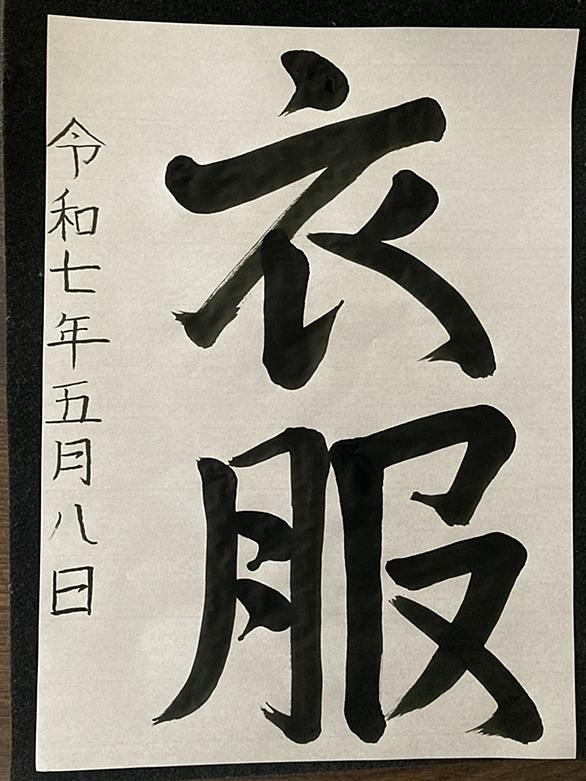 衣服
令和七年五月八日